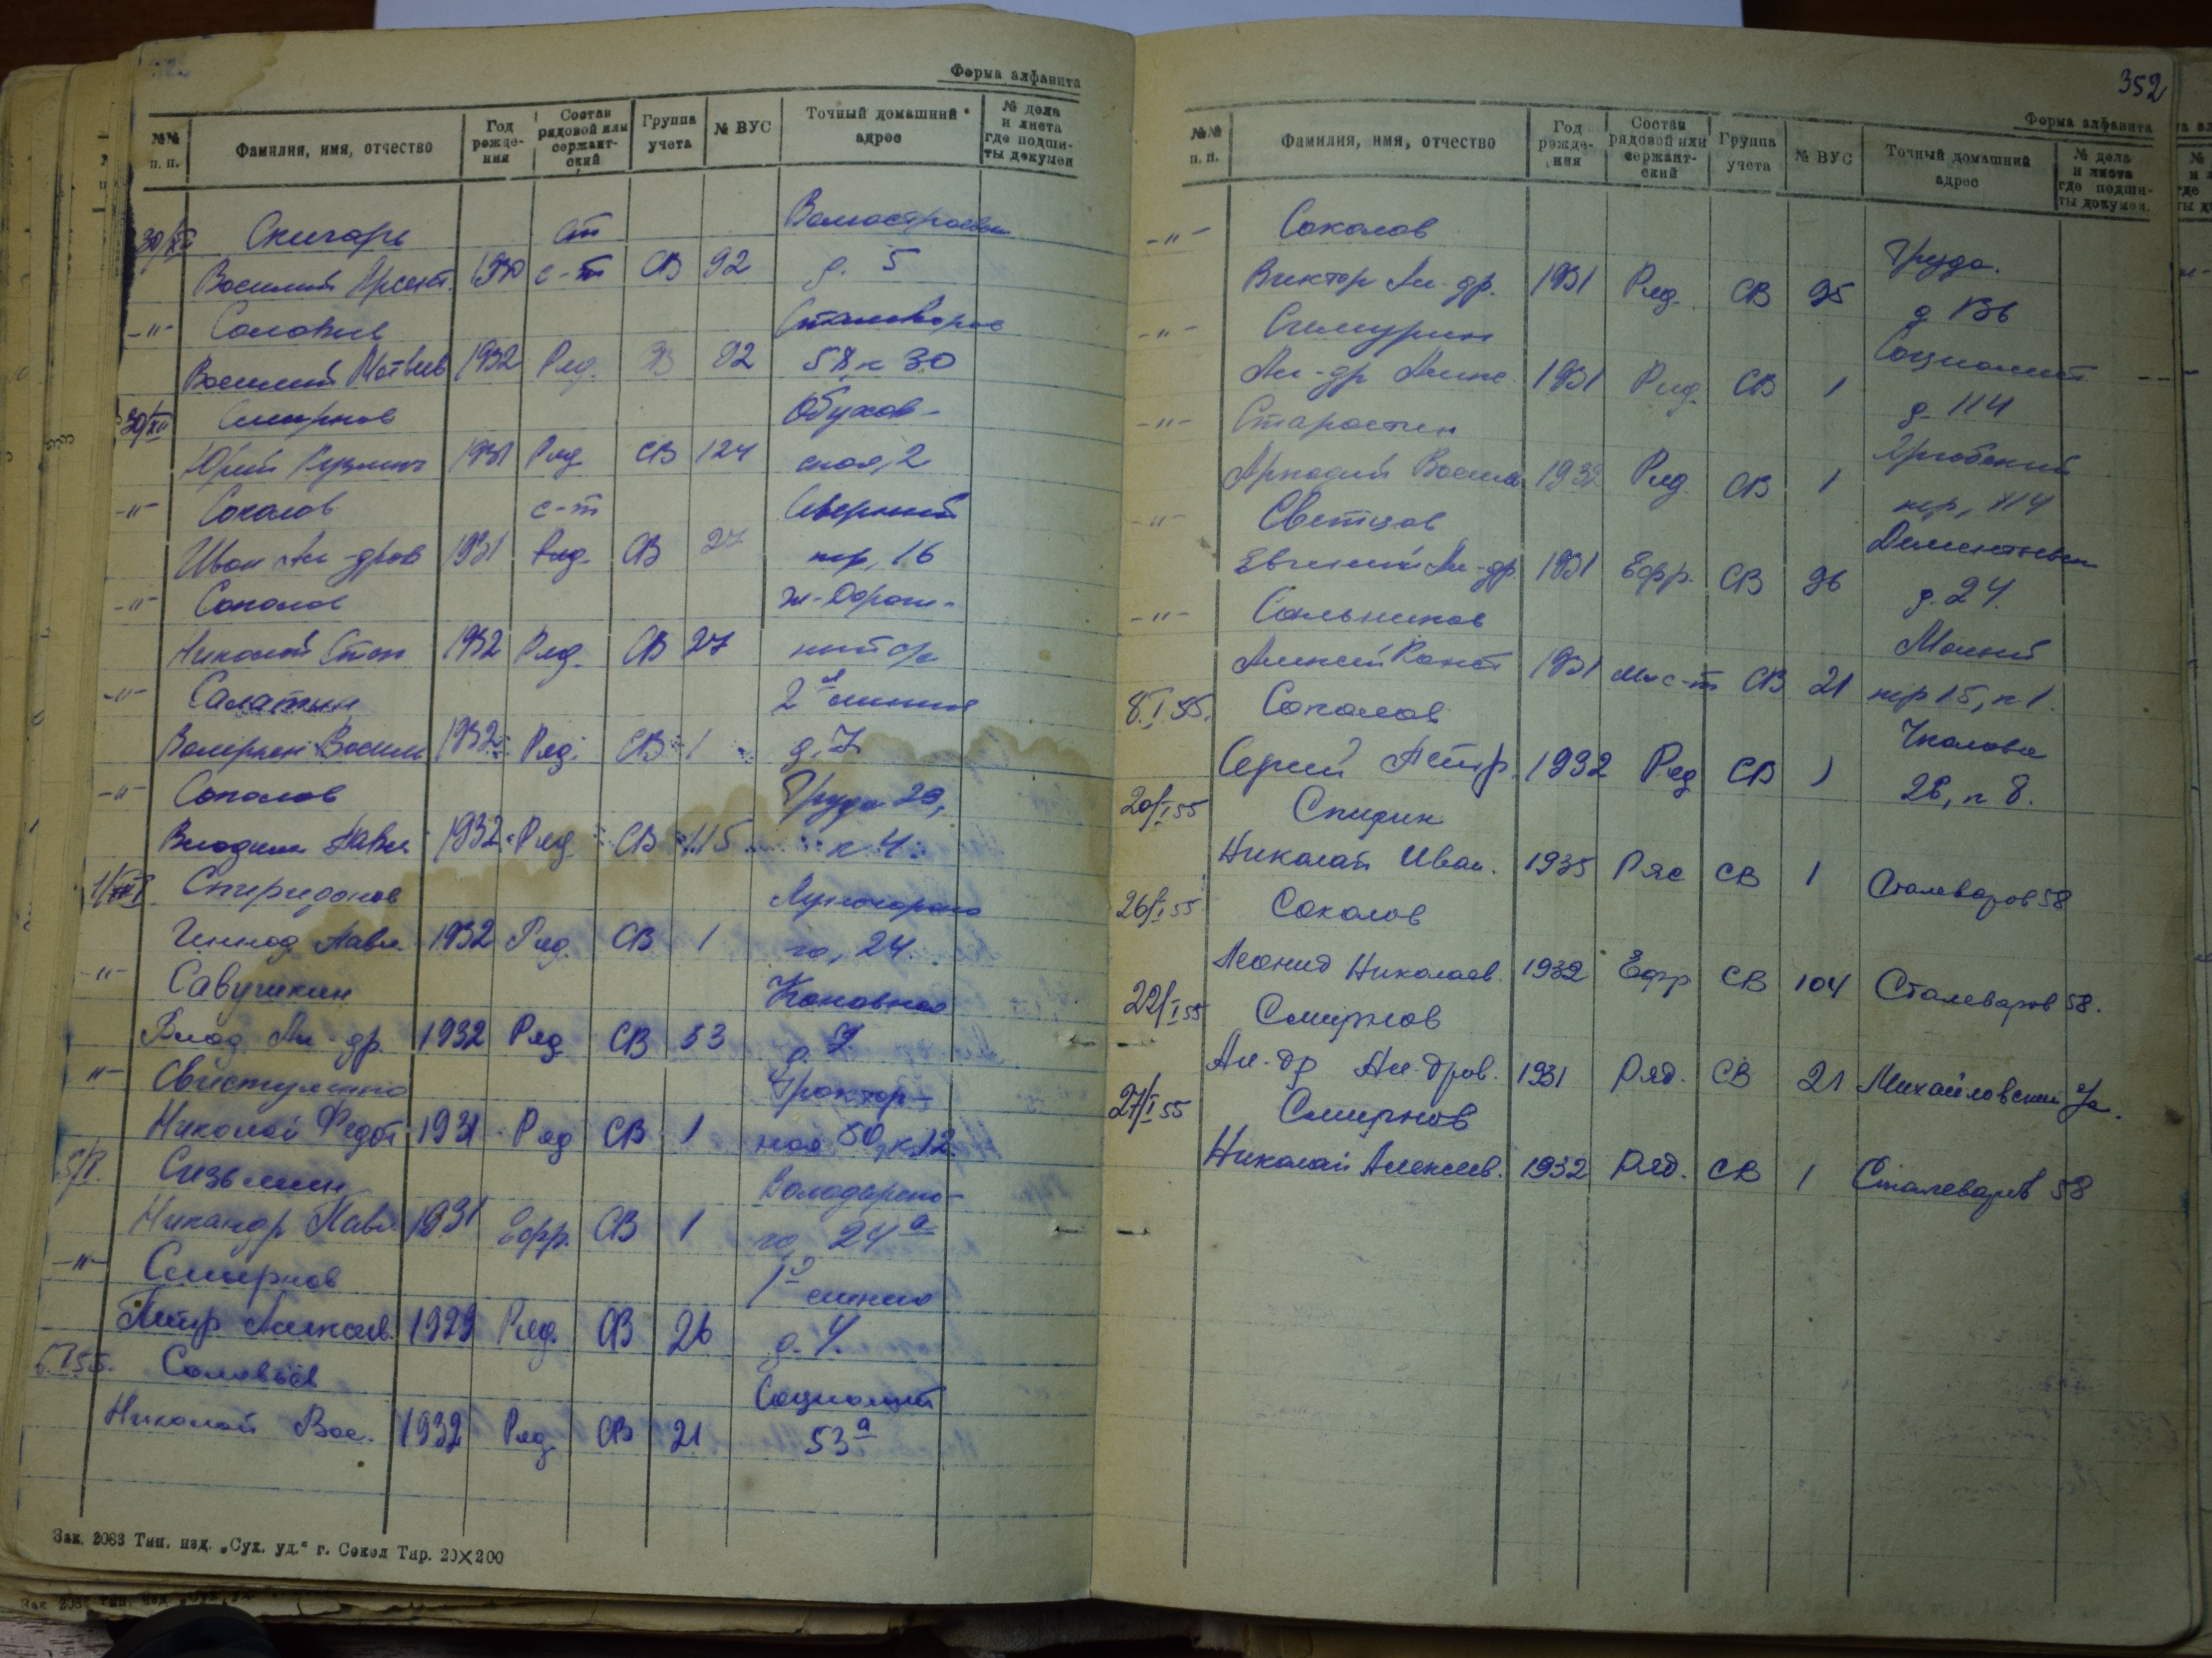 Форма алфавита
№№ п. п. Фамилия, имя, отчество Год рожде- ния Состав рядовой или сержант- ский Группа учета № ВУС Точный домашний адрес № дела и листа где подши- ты докумен
30/XII Скигарь ст
Василий Арсент. 1930 с-т СВ 92 д. 5
-"- Соловьев Сталеваров
Василий Матвеев 1932 Ряд. 92 58 к 30
30/XII Смирнов Обухов-
Юрий 1931 Ряд СВ 124 ская, 2
-"- Соколов с-т Северный
Иван Ал-дров 1931 Ряд. СВ 27 пер, 16
-"- Соколов Ж-Дорож-
Николай Степ 1932 Ряд. СВ 27 ный
-"- Салатин 2я линия
Валериан Васил 1932 Ряд. СВ 1 д. 7
-"- Соколов Труда 29,
Владим Павл. 1932 Ряд СВ 115 к 4.
Спиридонов Луначарско
Геннад Павл. 1932 Ряд. СВ 1 го, 24.
-"- Савушкин
Влад. Ал-др. 1932 Ряд СВ 53
-"- Свистуленко Трактор-
Николай Федот 1931 Ряд СВ 1 ная 50, к 12.
5/I. Сизьмин Володарско-
Никандр Павл 1931 Ефр. СВ 1 го, 24а
-"- Смирнов линия
Петр Алексеев. 1929 Ряд. СВ 26 д. 4.
6.I 55. Соловьев Социалист
Николай Вас. 1932 Ряд СВ 21 53а
Зак. 2083 Тип. изд. „Сух. уд." г. Сокол Тир. 20×200
352
Форма алфавита
№№ п. п. Фамилия, имя, отчество Год рожде- ния Состав рядовой или сержант- ский Группа учета № ВУС Точный домашний адрес № дела и листа где подши- ты докумен.
-"- Соколов Труда.
Виктор Ал-др. 1931 Ряд. СВ 95
-"- Социалист
Ал-др Алекс. 1931 Ряд. СВ 1 д. 114
-"- Старостин
Аркадий Васил 1932 Ряд. СВ 1
-"- Светцов Дементьева
Евгений Ал-др 1931 Ефр. СВ 96 д. 24.
-"- Сальников Малый
Алексей Конст 1931 мл с-т СВ 21 пер 15, к 1.
8.I 55. Соколов Чкалова
Сергей Петр. 1932 Ряд СВ 1 26, к 8.
20/I 55 Спирин
Николай Иван. 1935 Ряс СВ 1 Сталеваров 58
26/I 55 Соколов
Леонид Николаев. 1932 Ефр СВ 104 Сталеваров 58.
22/I 55 Смирнов
Ал-др Ал-дров. 1931 Ряд. СВ 21 Михайловский
27/I 55 Смирнов
Николай Алексеев. 1932 Ряд. СВ 1 Сталеваров 58